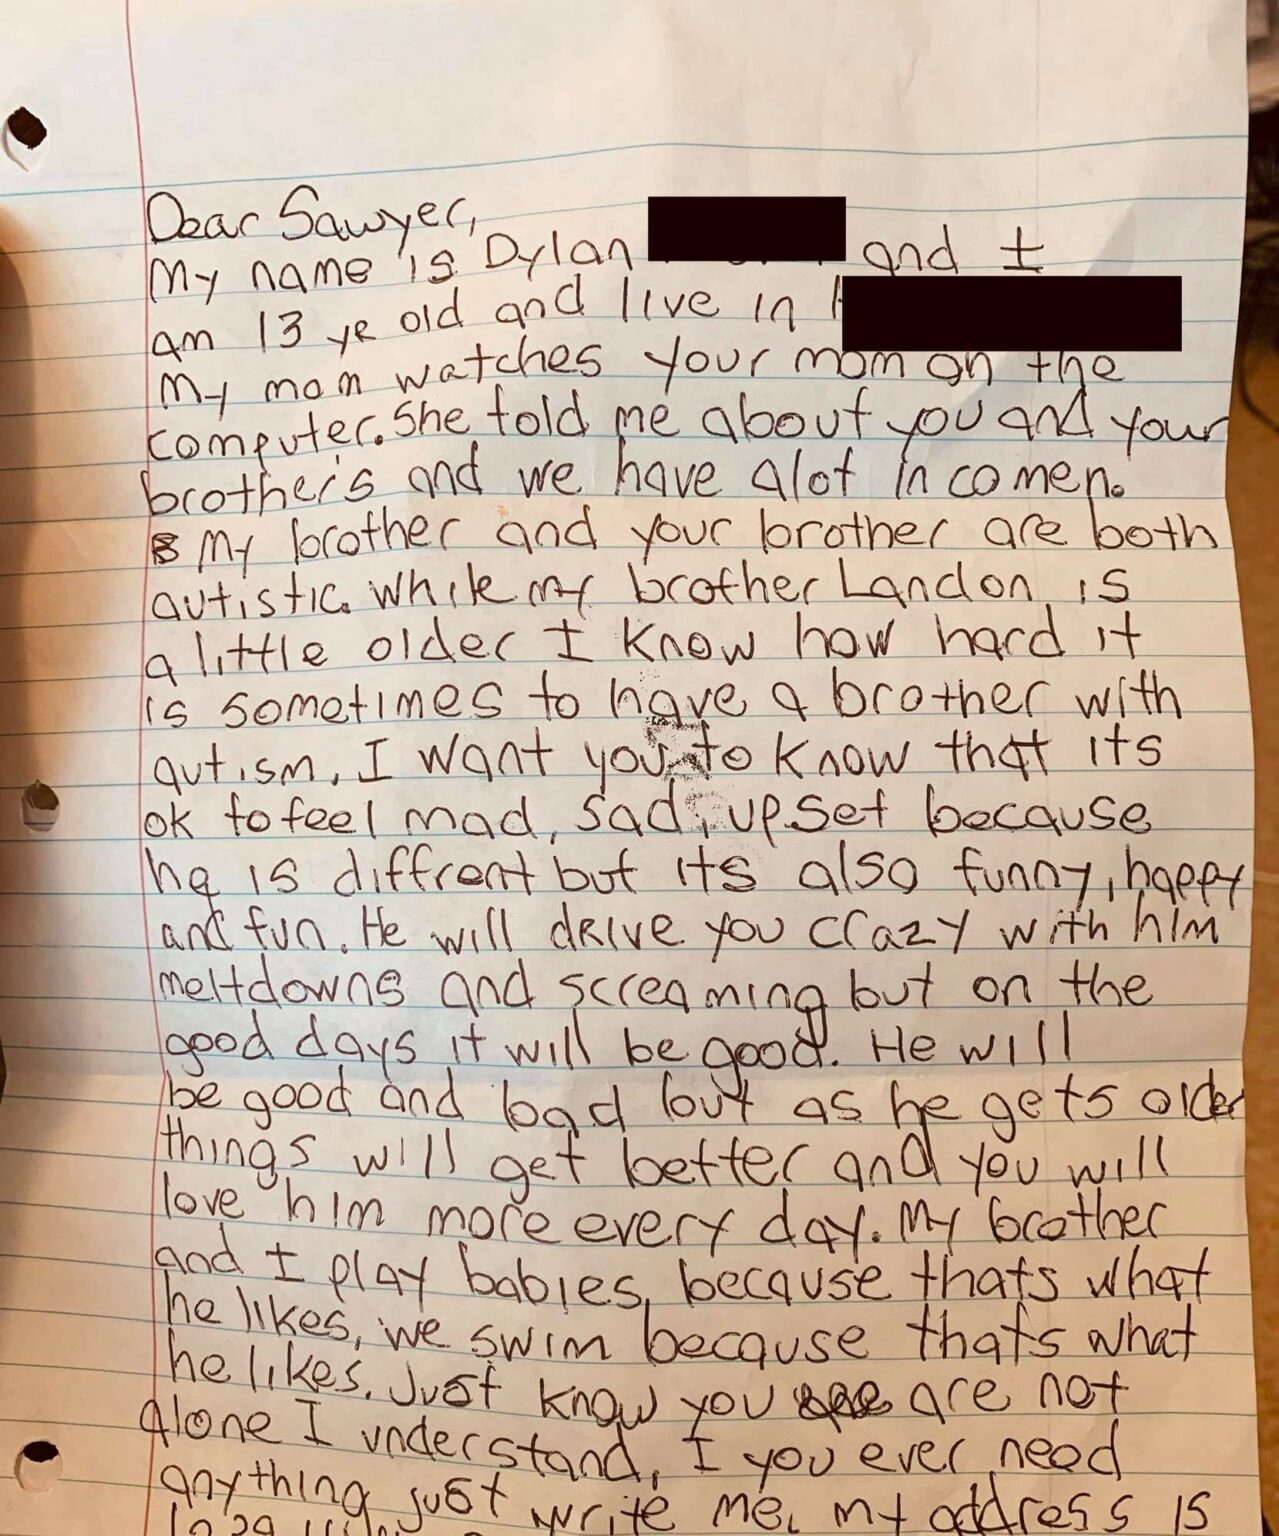 Dear Sawyer,
My name is Dylan and I
am 13 ye old and live in
My mom watches your mom on the
computer. She told me about you and your
brothers and we have alot in comen.
My brother and your brother are both
autistic. While my brother Landon is
a little older I know how hard it
is sometimes to have a brother with
autism. I want you to know that its
ok to feel mad, sad, upset because
he is diffrent but its also funny, happy
and fun. He will drive you crazy with him
meltdowns and screaming but on the
good days it will be good. He will
be good and bad but as he gets older
things will get better and you will
love him more every day. My brother
and I play babies, because thats what
he likes, we swim because thats what
he likes. Just know you are not
alone I understand, I you ever need
anything just write me. my address is